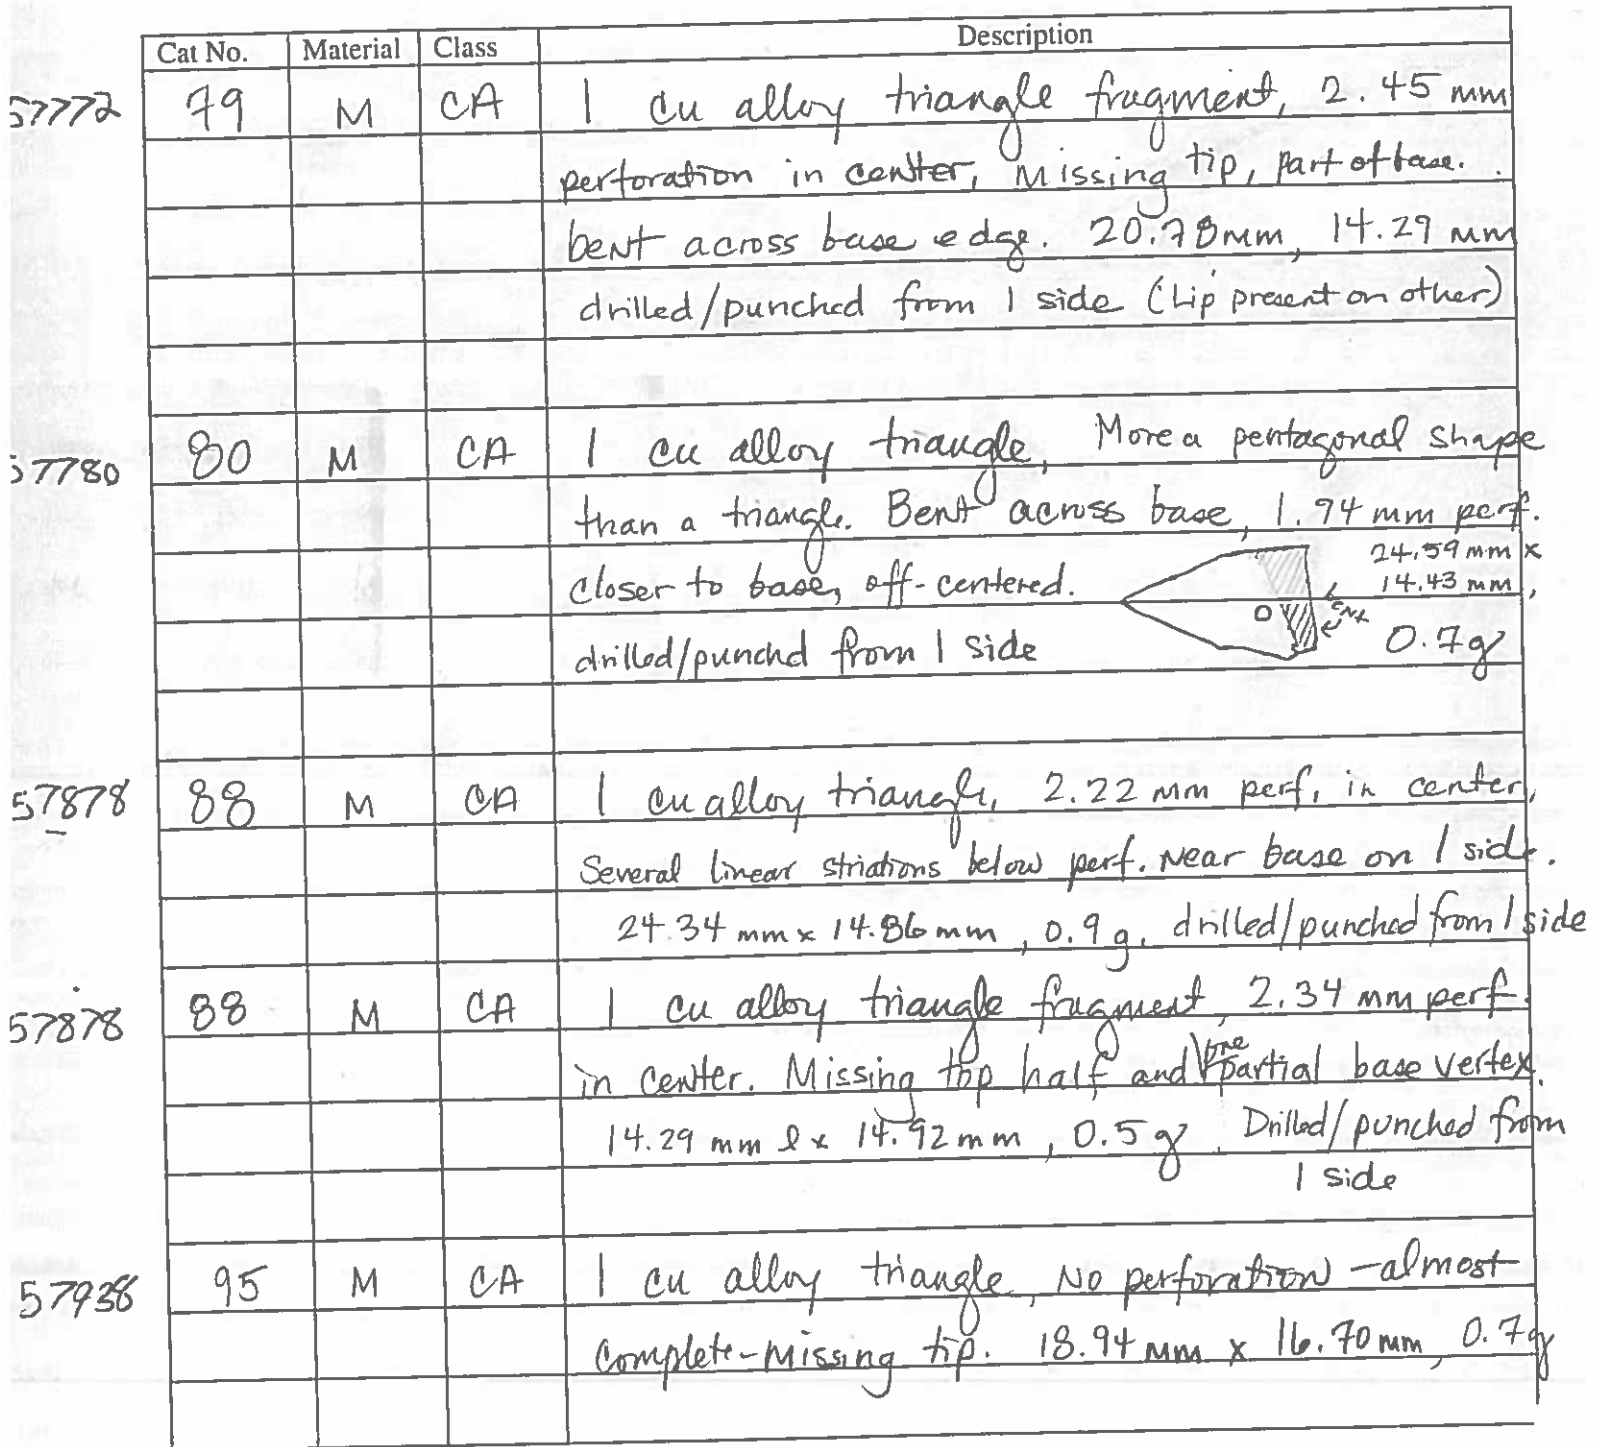 Cat No. Material Class Description
57772 79 M CA 1 cu alloy triangle fragment, 2.45 mm
perforation in center, Missing tip, part of base.
bent across base edge. 20.78mm, 14.29 mm
drilled/punched from 1 side (Lip present on other)
57780 80 M CA 1 cu alloy triangle, More a pentagonal shape
than a triangle. Bent across base, 1.94 mm perf.
24.59 mm x
closer to base, off-centered. 14.43 mm,
drilled/punchd from 1 side 0.7g
57878 88 M CA 1 cu alloy triangle, 2.22 mm perf, in center,
Several linear striations below perf. Near base on 1 side.
24.34 mm x 14.86 mm, 0.9 g, drilled/punched from 1 side
57878 88 M CA 1 cu alloy triangle fragment, 2.34 mm perf.
in center. Missing top half and one partial base vertex.
14.29 mm l x 14.92 mm, 0.5 g Drilled/punched from
1 side
57938 95 M CA 1 cu alloy triangle, No perforation - almost
complete - missing tip. 18.94 mm x 16.70 mm, 0.7g